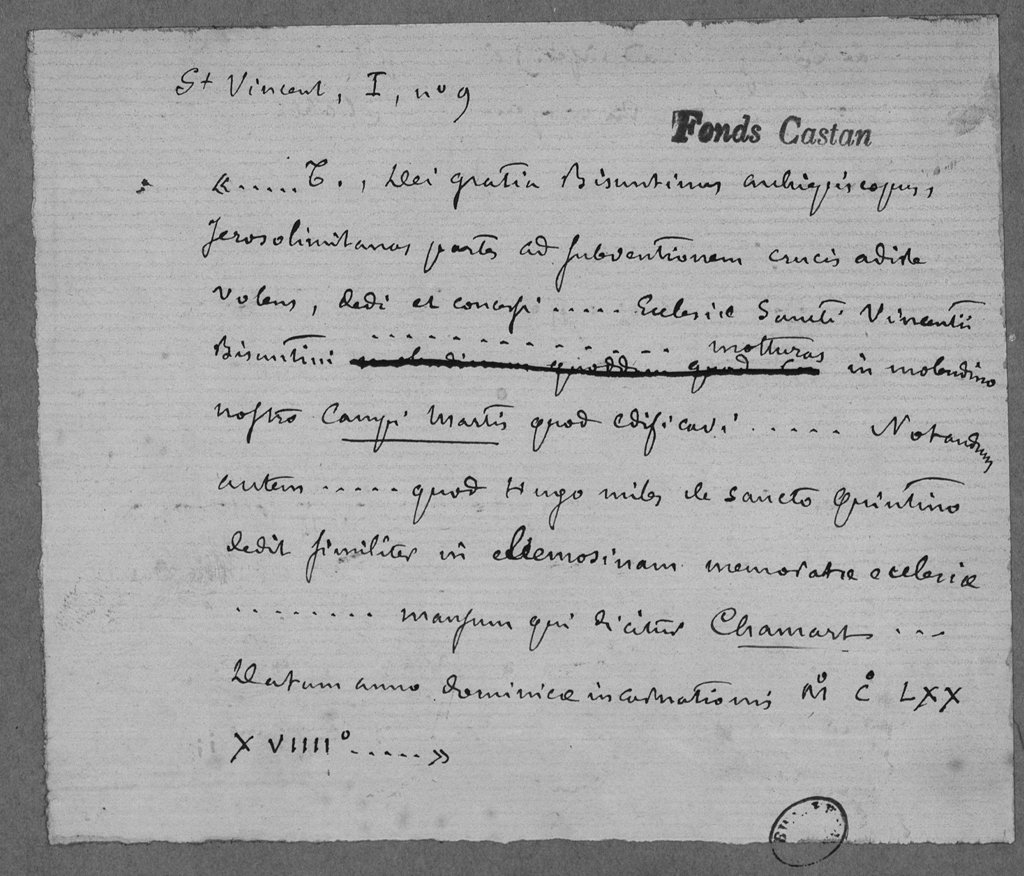 St Vincent, I, no 9
Fonds Castan
«.....T., Dei gratia Bisuntinus archiepiscopus,
Jerosolimitanas partes ad subventionem crucis adire
volens, dedi et concessi ..... Ecclesiæ Sancti Vincentii
Bisuntini ............ molturas in molendino
nostro Campi Martis quod edificavi ..... Notandum
autem ..... quod Hugo miles de Sancto Quintino
dedit similiter in elemosinam memoratæ ecclesiæ
......... mansum qui dicitur Chamart ...
Datum anno dominicæ incarnationis Mº Cº LXX
XVIIIIº.....»